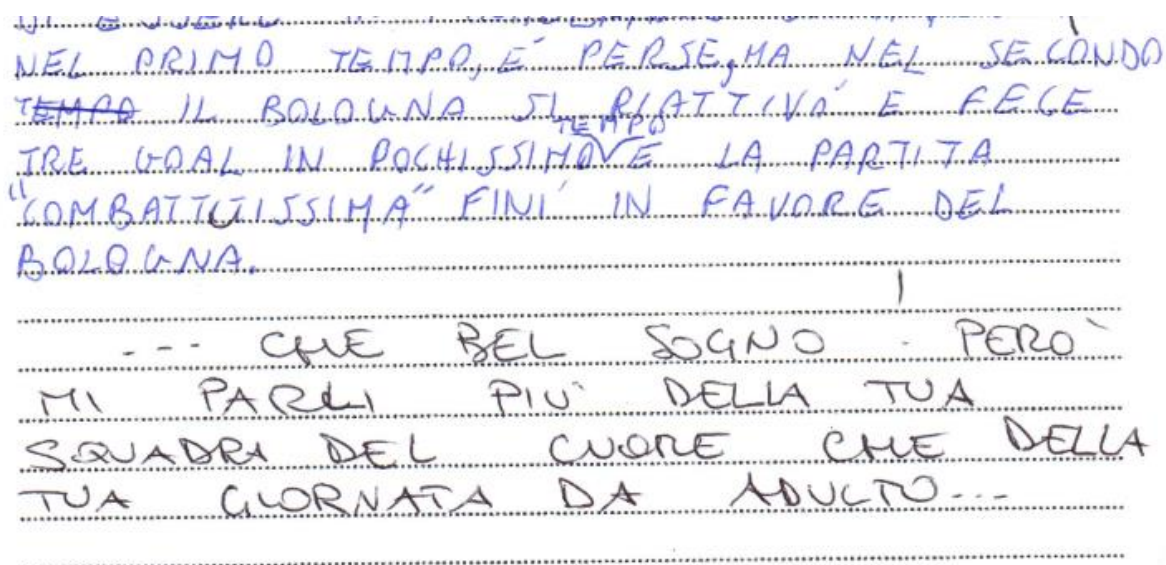 NEL PRIMO TEMPO, E' PERSE, MA NEL SECONDO
TEMPO IL BOLOGNA SI RIATTIVA' E FECE
TEMPO
TRE GOAL IN POCHISSIMO E LA PARTITA
"COMBATTUTISSIMA" FINI' IN FAVORE DEL
BOLOGNA.
... CHE BEL SOGNO! PERÒ
MI PARLI PIÙ DELLA TUA
SQUADRA DEL CUORE CHE DELLA
TUA GIORNATA DA ADULTO...